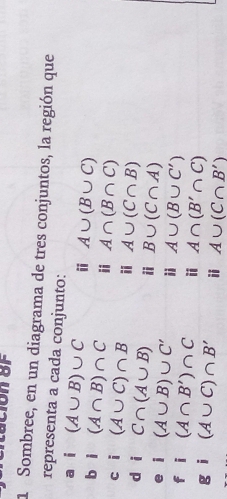 jercitación 8F
1 Sombree, en un diagrama de tres conjuntos, la región que
representa a cada conjunto:
a i (A ∪ B) ∪ C ii A ∪ (B ∪ C)
b i (A ∩ B) ∩ C ii A ∩ (B ∩ C)
c i (A ∪ C) ∩ B ii A ∪ (C ∩ B)
d i C ∩ (A ∪ B) ii B ∪ (C ∩ A)
e i (A ∪ B) ∪ C′ ii A ∪ (B ∪ C′)
f i (A ∩ B′) ∩ C ii A ∩ (B′ ∩ C)
g i (A ∪ C) ∩ B′ ii A ∪ (C ∩ B′)